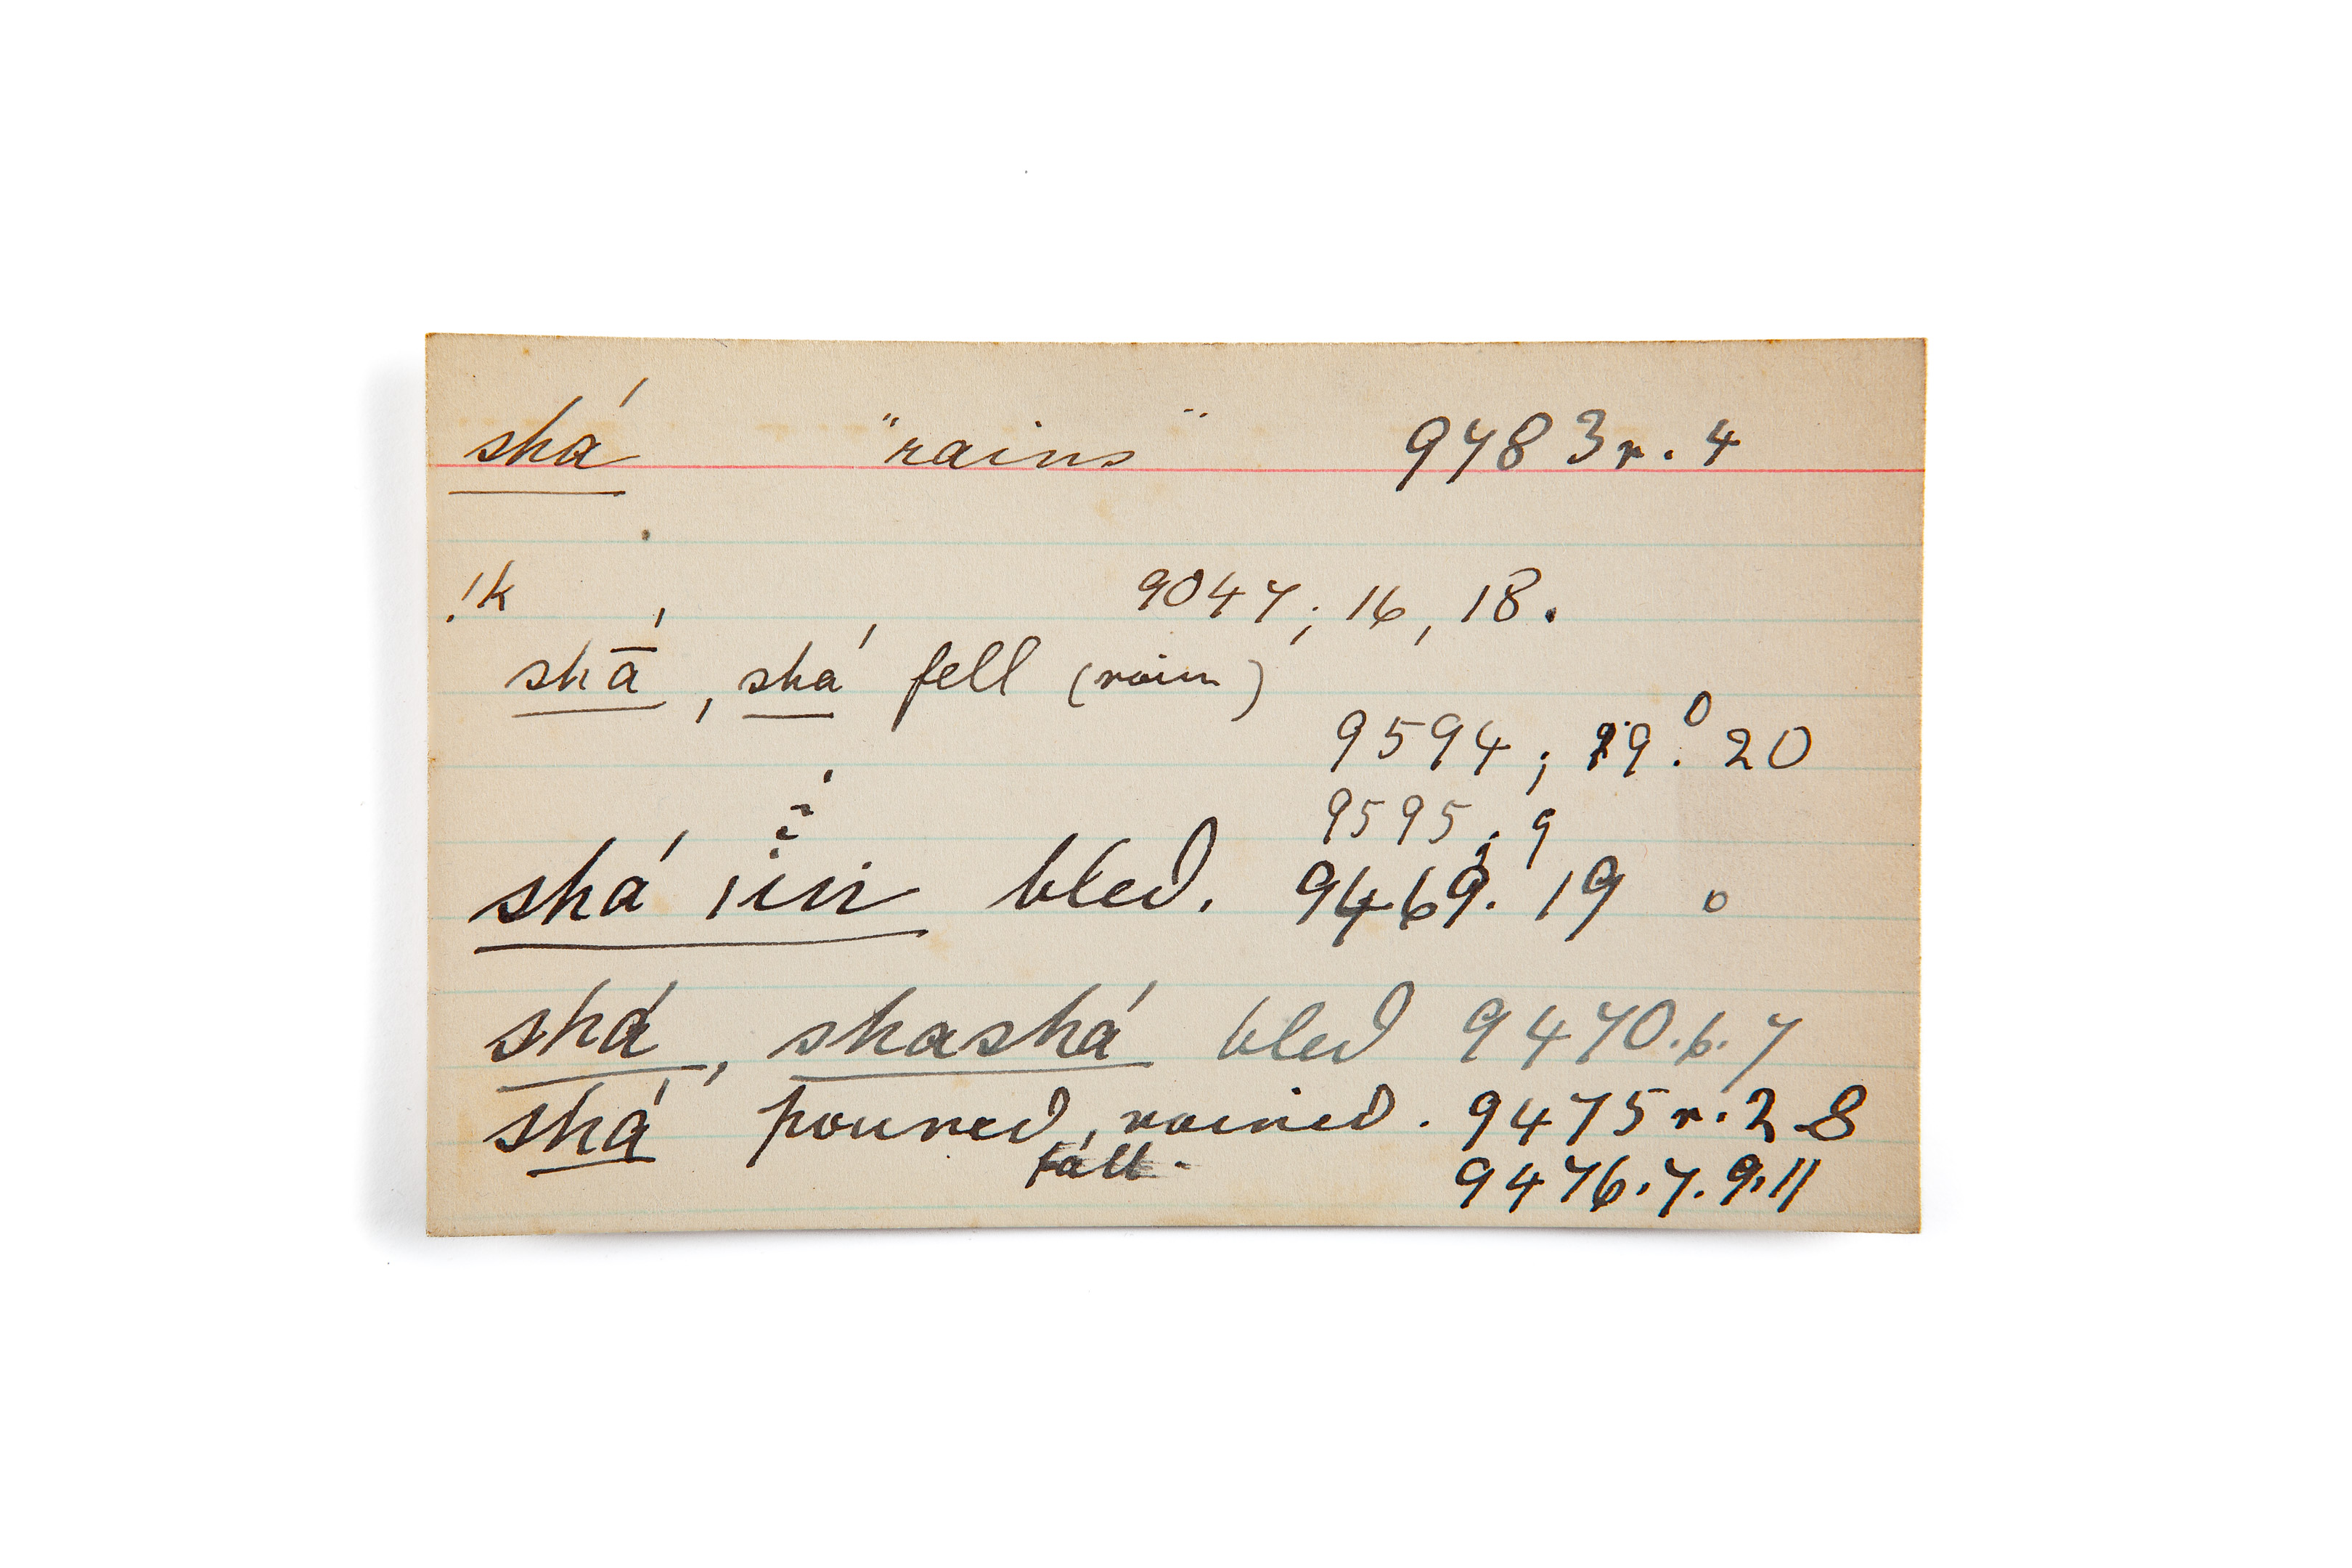 shá "rains" 9483r. 4
!k 9047; 16, 18.
shā́, shá fell (rain)
9594; 19. 20
9595; 9
shá bled. 9469. 19
shá, shashá bled 9470. 6. 7
shá poured, rained. 9475r. 2 8
fall. 9476. 7. 9. 11